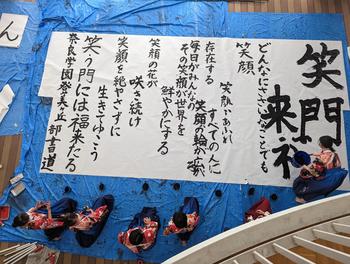 笑門
来
どんなにささいなことでも
笑顔
笑顔あふれ
すべての人に
笑顔の輪が
存在する
毎日がみんなの
その笑顔が世界を
鮮やかにする
笑顔の花が
咲き続け
笑顔を絶やさずに
生きてゆこう
笑う門には福来たる
奈良学園登美ヶ丘 書道部
ん